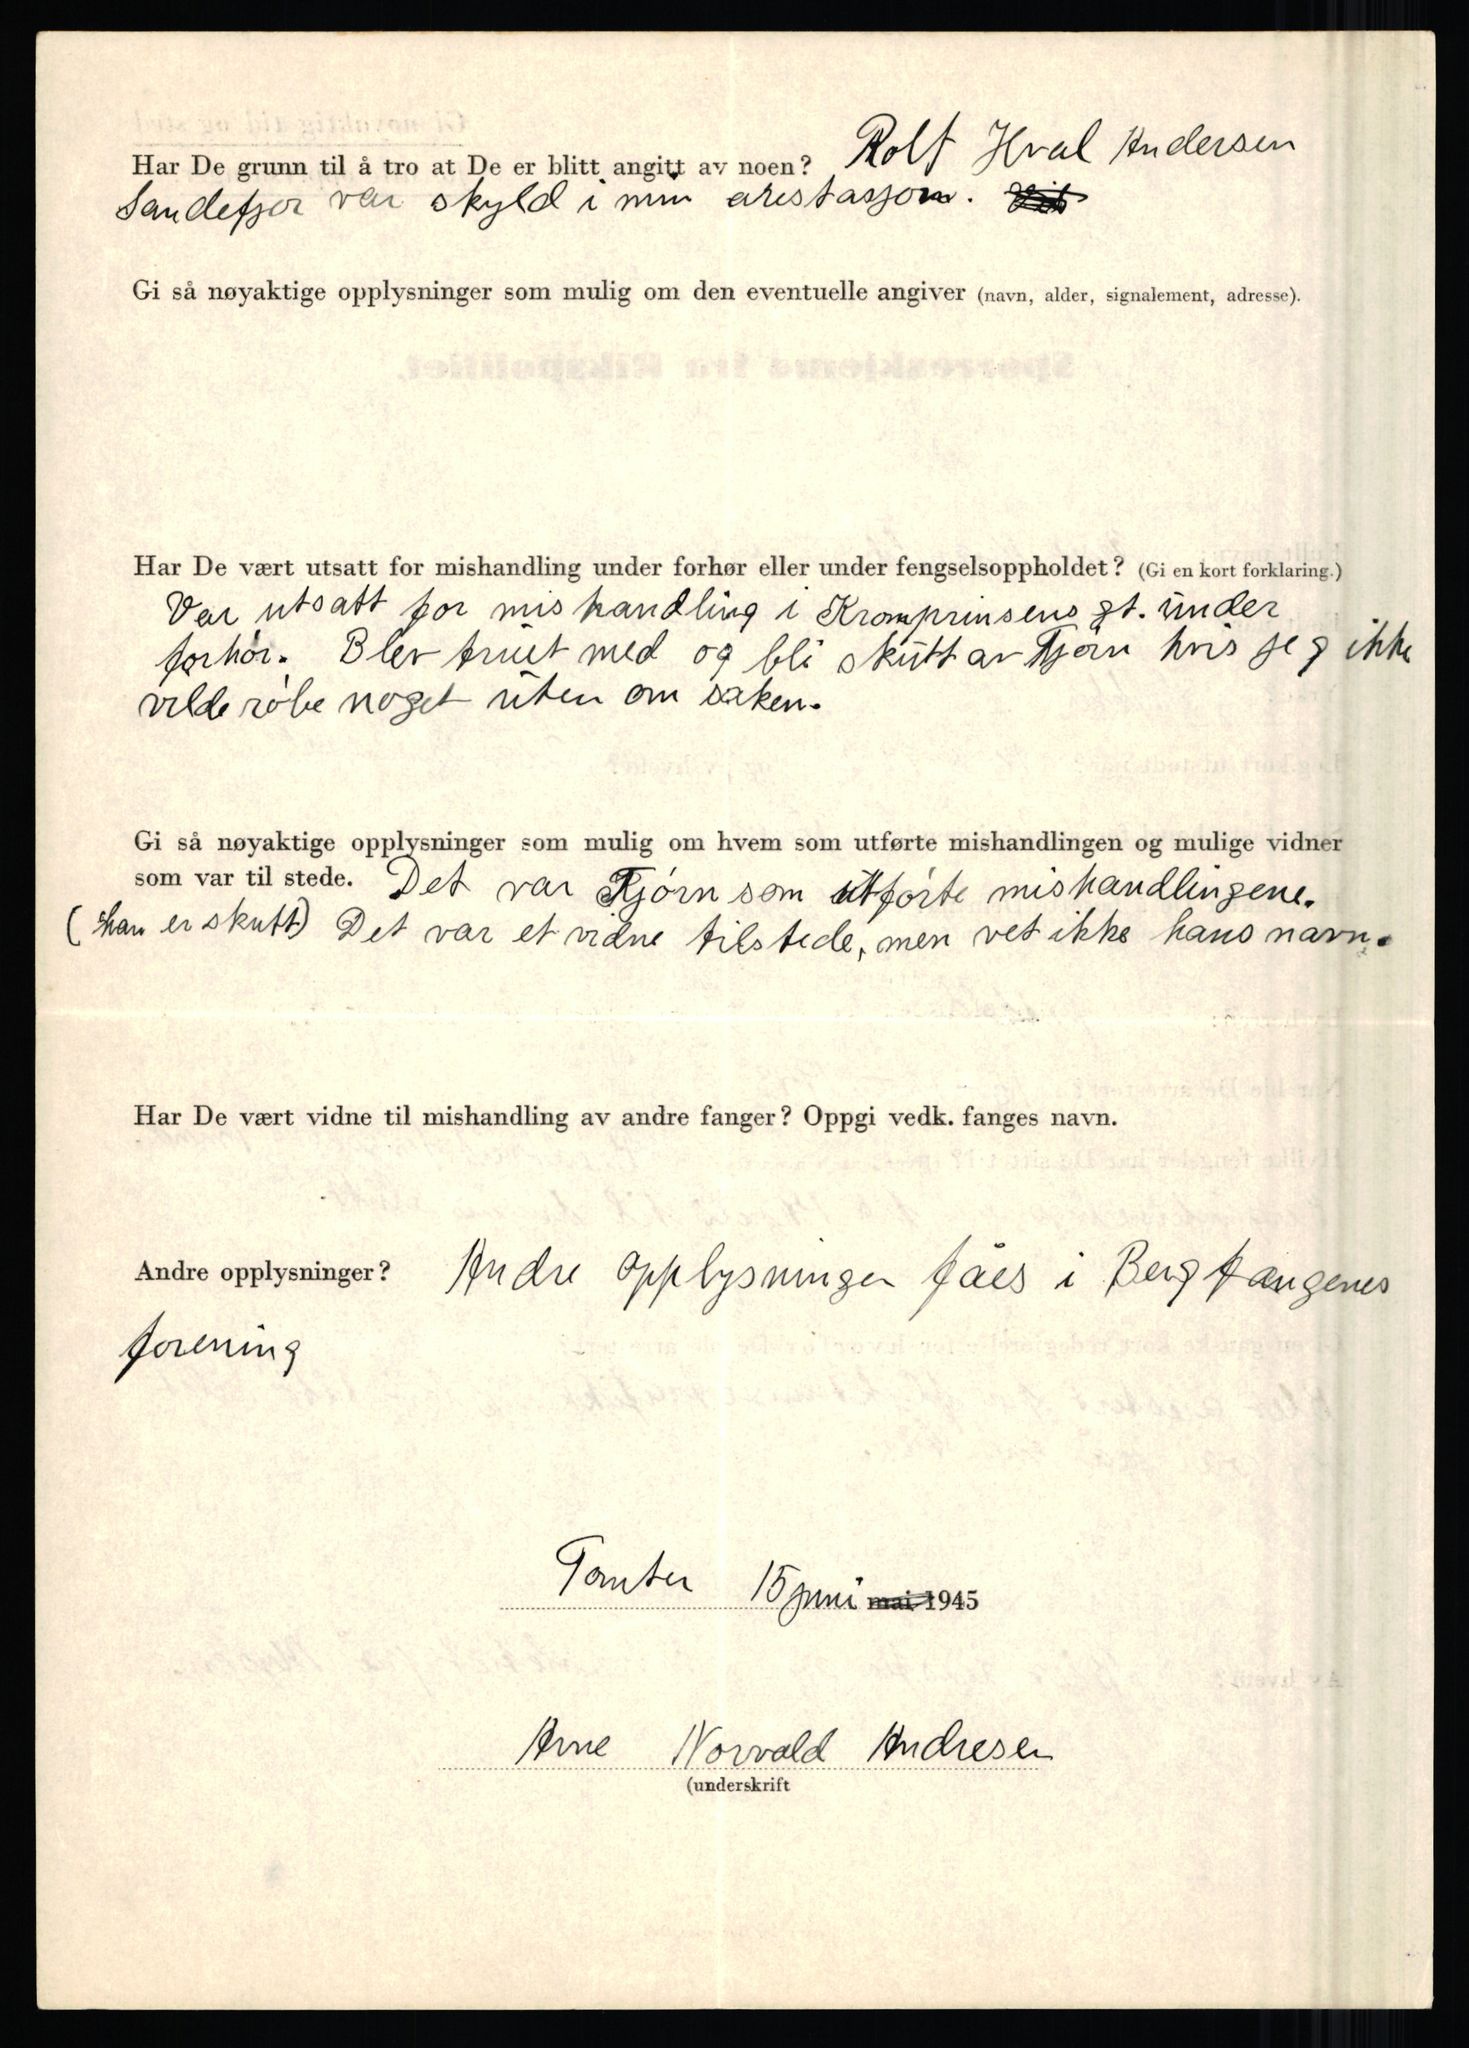 Har De grunn til å tro at De er blitt angitt av noen? Rolf Hval Andersen
Sandefjor var skyld i min arestasjon.
Gi så nøyaktige opplysninger som mulig om den eventuelle angiver (navn, alder, signalement, adresse).
Har De vært utsatt for mishandling under forhør eller under fengselsoppholdet? (Gi en kort forklaring.)
Var utsatt for mishandling i Kromprinsens gt. under
forhør. Blev truet med og bli skutt av Tjørn hvis jeg ikke
vilde røbe noget uten om saken.
Gi så nøyaktige opplysninger som mulig om hvem som utførte mishandlingen og mulige vidner
som var til stede. Det var Tjørn som utførte mishandlingene.
(han er skutt) Det var et vidne tilstede, men vet ikke hans navn.
Har De vært vidne til mishandling av andre fanger? Oppgi vedk. fanges navn.
Andre opplysninger? Andre opplysninger fåes i Bergfangenes
forening
Tomter 15 juni mai 1945
Arne Norvald Andresen
(underskrift